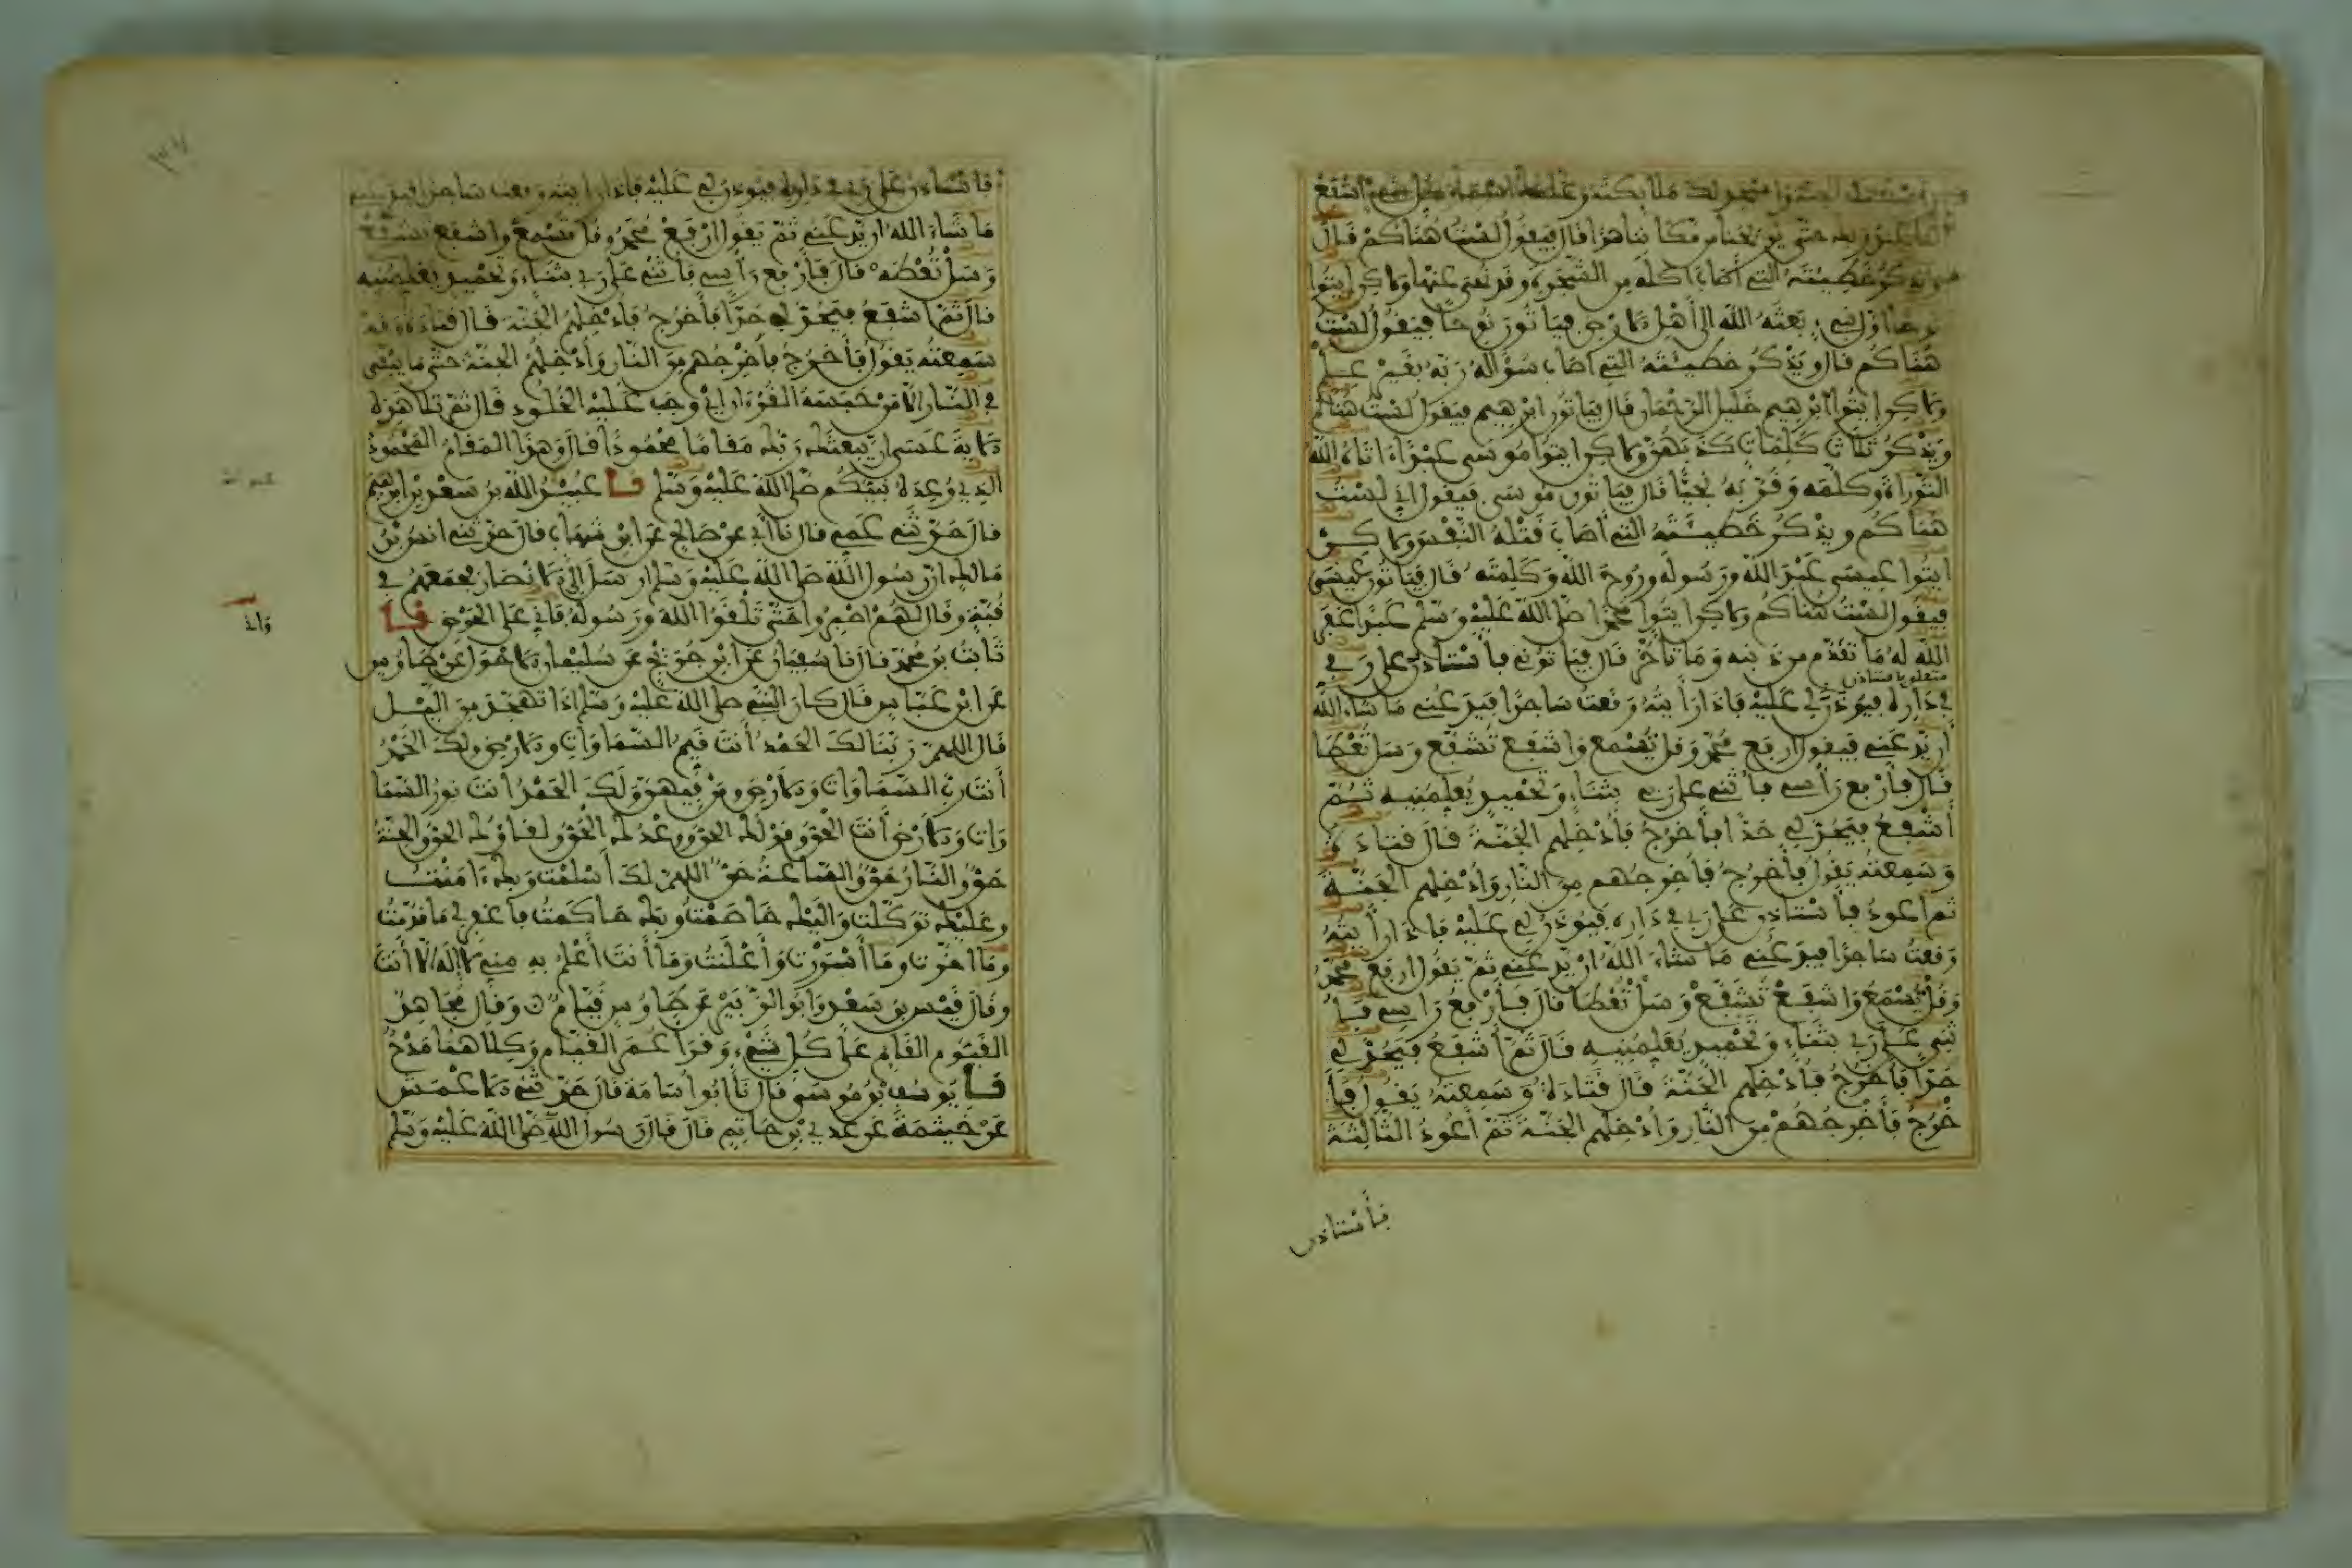 وأسكنك جنته وأسجد لك ملائكته وعلمك أسماء كل شيء اشفع
لنا عند ربك حتى يريحنا من مكاننا هذا قال فيقول لست هناكم قال
ويذكر خطيئته التي أصاب أكله من الشجرة وقد نهي عنها ولاكن ايتوا
نوحا أول نبيء بعثه الله إلى أهل الارض فياتون نوحا فيقول لست
هناكم قال ويذكر خطيئته التي أصاب سؤاله ربه بغير علم
ولاكن ايتوا ابرهيم خليل الرحمان قال فياتون ابرهيم فيقول لست هناكم
ويذكر ثلاث كلمات كذبهن ولاكن ايتوا موسى عبدا اتاه الله
التوراة وكلمه وقربه نجيا قال فياتون موسى فيقول اني لست
هناكم ويذكر خطيئته التي أصاب قتله النفس ولاكن
ايتوا عيسى عبد الله ورسوله وروح الله وكلمته قال فياتون عيسى
فيقول لست هناكم ولاكن ايتوا محمدا صلى الله عليه وسلم عبدا غفر
الله له ما تقدم من ذنبه وما تأخر قال فياتوني فأستاذن على ربي
في داره فيوذن لي عليه فاذا رأيته وقعت ساجدا فيدعني ما شاء الله
أن يدعني فيقول ارفع محمد وقل تسمع واشفع تشفع وسل تعطا
قال فأرفع رأسي فأثني على ربي بثناء وتحميد يعلمنيه ثم
أشفع فيحد لي حدا فأخرج فأدخلهم الجنة قال قتادة
وسمعته يقول فأخرج فأخرجهم من النار وأدخلهم الجنة
ثم أعود فأستاذن على ربي في داره فيوذن لي عليه فاذا رأيته
وقعت ساجدا فيدعني ما شاء الله أن يدعني ثم يقول ارفع محمد
وقل تسمع واشفع تشفع وسل تعطا قال فأرفع رأسي فأ
ثني على ربي بثناء وتحميد يعلمنيه قال ثم أشفع فيحد لي
حدا فأخرج فأدخلهم الجنة قال قتادة وسمعته يقول فأ
خرج فأخرجهم من النار وأدخلهم الجنة ثم أعود الثالثة
فأستاذن
فأستاذن على ربي في داره فيوذن لي عليه فاذا رأيته وقعت ساجدا فيدعني
ما شاء الله أن يدعني ثم يقول ارفع محمد وقل تسمع واشفع تشفع
وسل تعطه قال فأرفع رأسي فأثني على ربي بثناء وتحميد يعلمنيه
قال ثم أشفع فيحد لي حدا فأخرج فأدخلهم الجنة قال قتادة وقد
سمعته يقول فأخرج فأخرجهم من النار وأدخلهم الجنة حتى ما يبقى
في النار الا من حبسه القرءان اي وجب عليه الخلود قال ثم تلا هذه
الاية عسى أن يبعثك ربك مقاما محمودا قال وهذا المقام المحمود
الذي وعده نبيكم صلى الله عليه وسلم نا عبيد الله بن سعد بن ابرهيم
قال حدثني عمي قال نا أبي عن صالح عن ابن شهاب قال حدثني انس بن
مالك ان رسول الله صلى الله عليه وسلم ارسل الى الانصار فجمعهم في
قبة وقال لهم اصبروا حتى تلقوا الله ورسوله فاني على الحوض نا
ثابت بن محمد قال نا سفيان عن ابن جريج عن سليمان الاحول عن طاوس
عن ابن عباس قال كان النبي صلى الله عليه وسلم اذا تهجد من اليل
قال اللهم ربنا لك الحمد أنت قيم السماوات والارض ولك الحمد
أنت رب السماوات والارض ومن فيهن ولك الحمد أنت نور السما
وات والارض أنت الحق وقولك الحق ووعدك الحق ولقاؤك الحق والجنة
حق والنار حق والساعة حق اللهم لك أسلمت وبك ءامنت
وعليك توكلت واليك خاصمت وبك حاكمت فاغفر لي ما قدمت
وما أخرت وما أسررت وأعلنت وما أنت أعلم به مني لا إله الا أنت
وقال قيس بن سعد وابو الزبير عن طاوس قيام وقال مجاهد
القيوم القائم على كل شيء وقرأ عمر القيام وكلاهما مدح
نا يوسف بن موسى قال نا ابو اسامة قال حدثني الاعمش
عن خيثمة عن عدي بن حاتم قال قال رسول الله صلى الله عليه وسلم